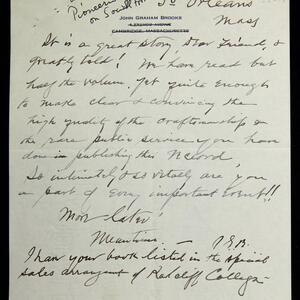 Pioneering
on Social
So Orleans
Mass
JOHN GRAHAM BROOKS
CAMBRIDGE, MASSACHUSETTS
It is a great story, Dear Friend, &
greatly told! We have read but
half the volume, yet quite enough
to make clear & convincing the
high quality of the craftsmanship &
the rare public service you have
done in publishing this Record.
So intimately & so vitally are you
a part of every important Event!!
More later!
Meantime – J.G.B.
I have your book listed in the special
sales arrangement of Radcliff College